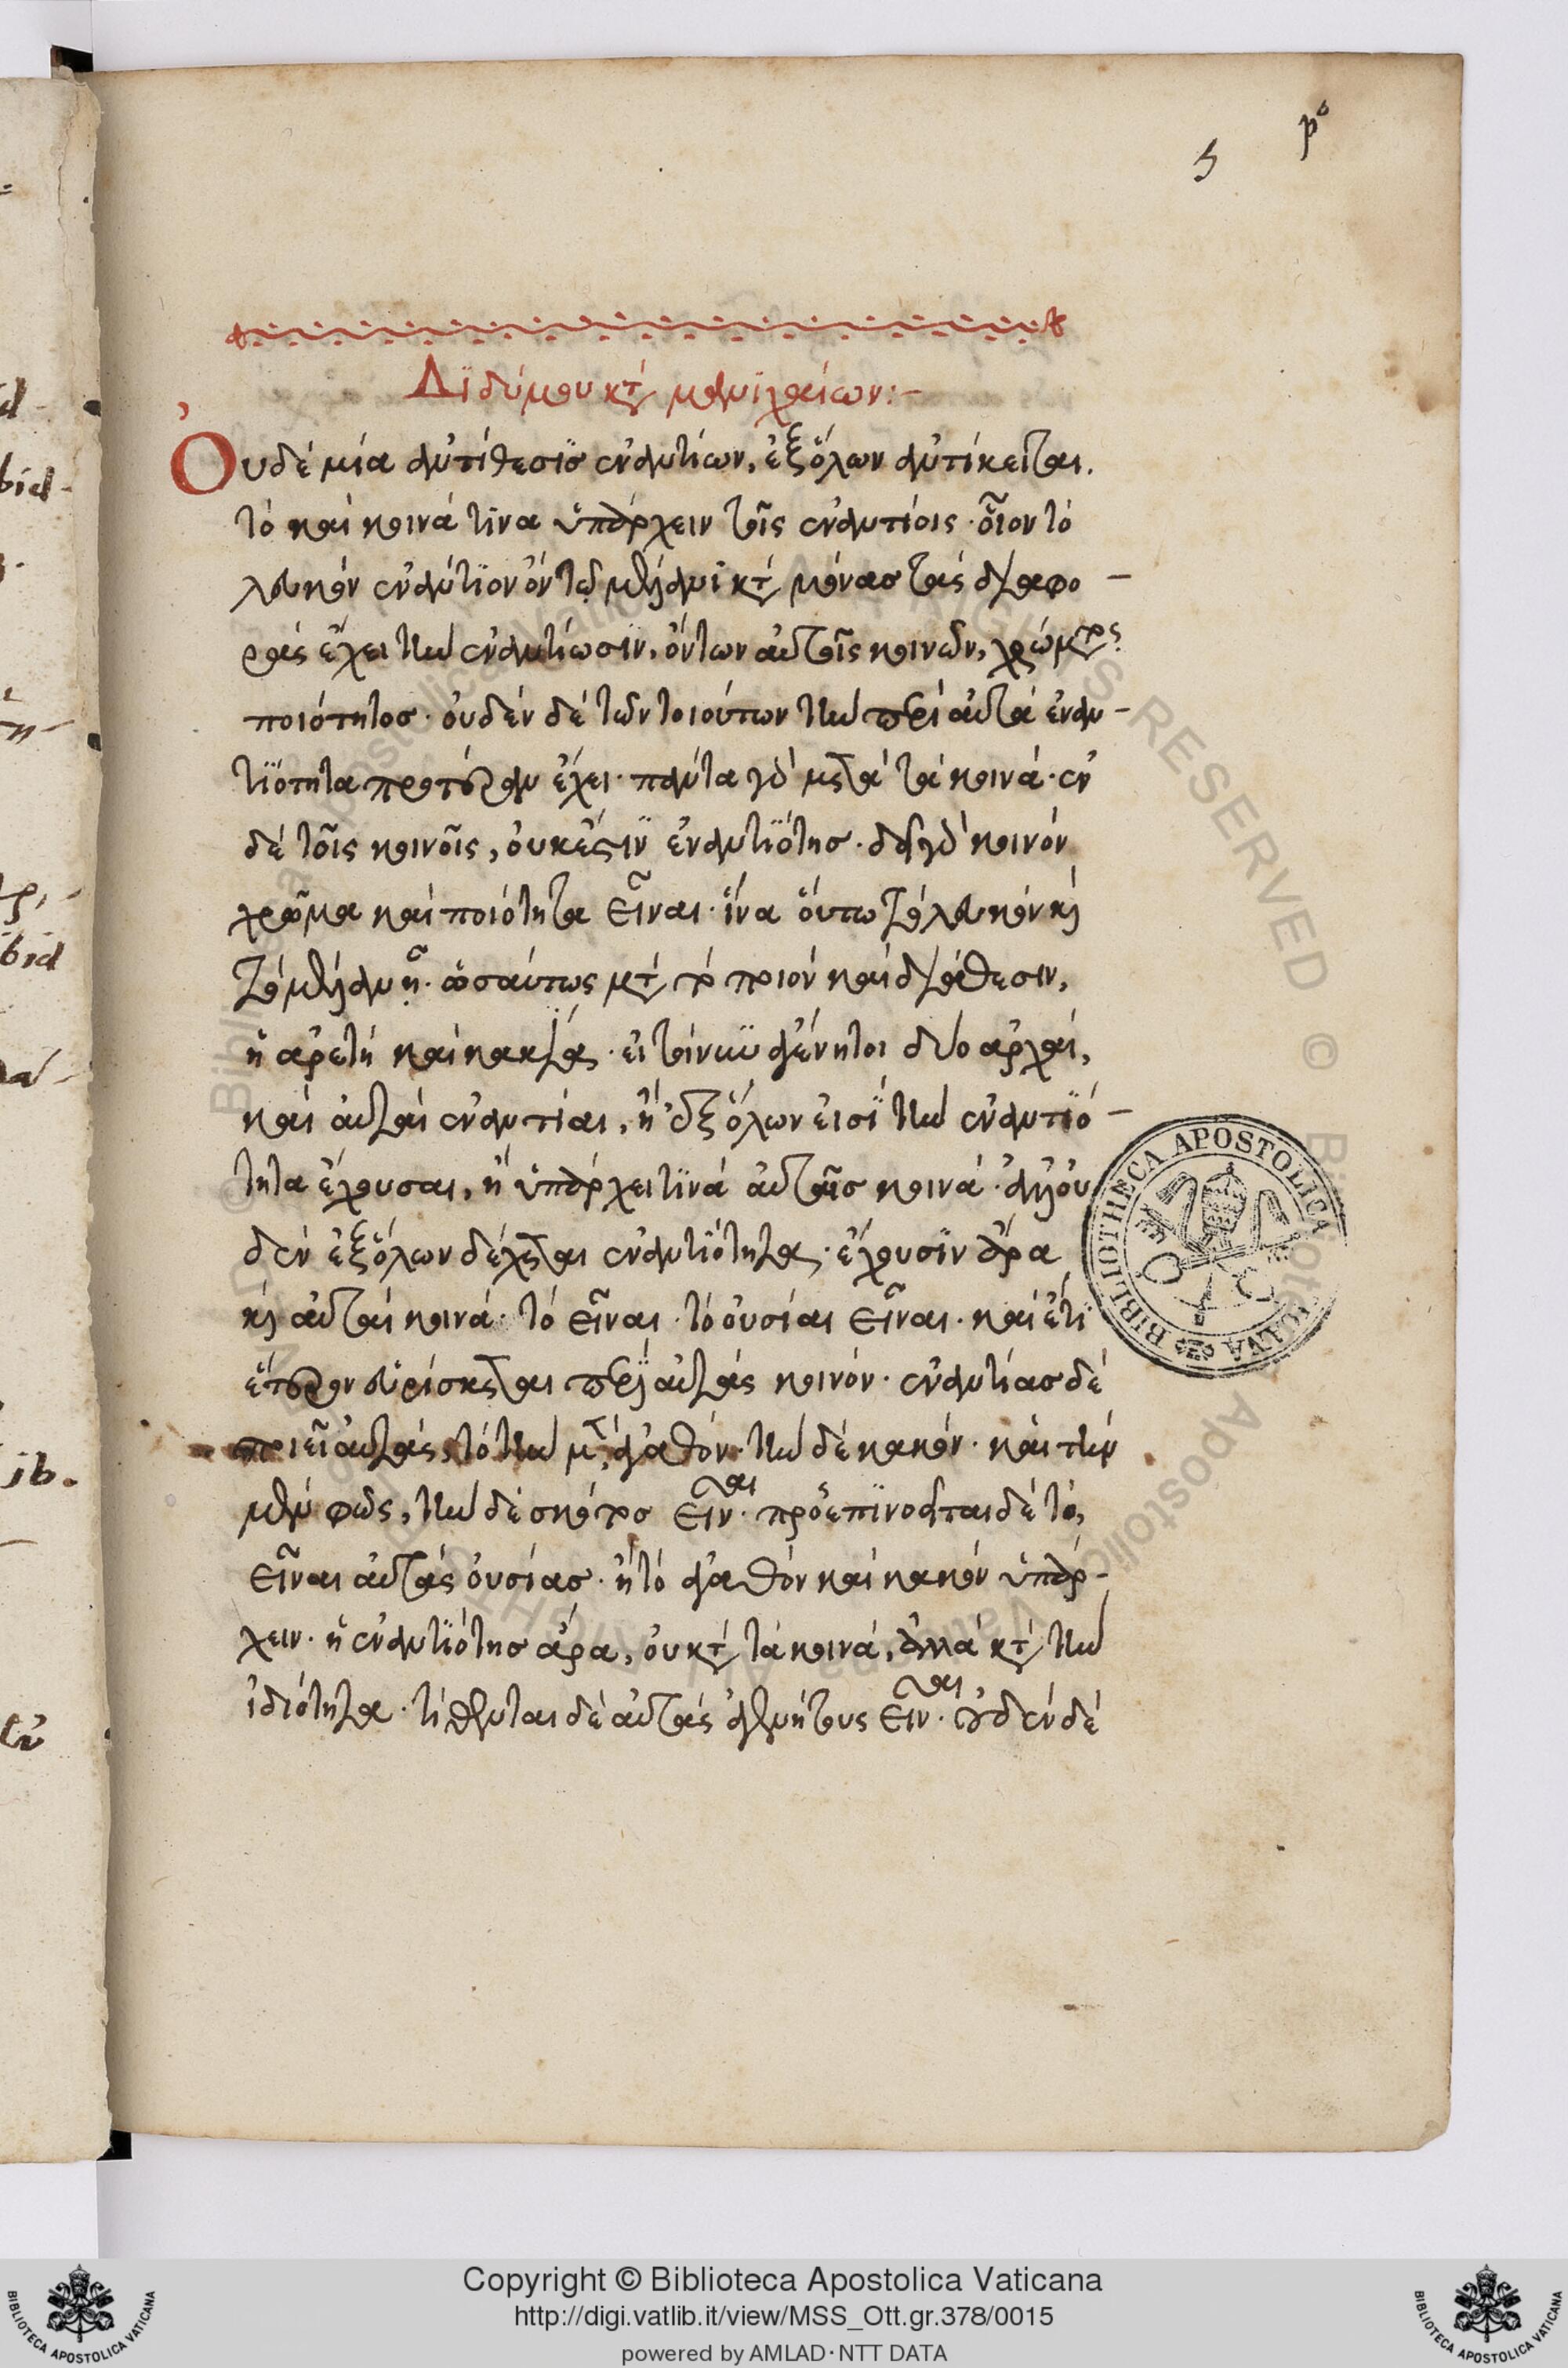 pº
5
Διδύμου κτ μανιχαίων:-
Ουδὲ μία ἀντίθεσις ἐναντίων, ἐξόλων ἀντίκειται.
τὸ καὶ κοινά τινα ὑπάρχειν τοῖς ἐναντίοις · οἷον τὸ
λευκὸν ἐναντίον ὂν τῶ μέλανι κτ μόνας τὰς διαφο
ρὰς ἔχει τὴν ἐναντίωσιν, ὄντων αὐτοῖς κοινῶν, χρώματος
ποιότητος · οὐδὲν δὲ τῶν τοιούτων τὴν περὶ αὐτὰ ἐναν
τιότητα προτέραν ἔχει · πάντα γὰρ μετὰ τὰ κοινά · ἐν
δὲ τοῖς κοινοῖς, οὐκέστιν ἐναντιότης · δεῖ γὰρ κοινὸν
χρῶμα καὶ ποιότητα εἶναι · ἵνα οὕτω τὸ λευκὸν κὶ
τὸ μέλαν ἦ · ὡσαύτως μτ τὸ ποιὸν καὶ διάθεσιν,
ἡ ἀρετὴ καὶ κακία · εἰ τοίνυν ἀγένητοι δύο ἀρχαί,
καὶ αὗται ἐναντίαι, ἢ ἐξόλων εἰσὶ τὴν ἐναντιό
τητα ἔχουσαι, ἢ ὑπάρχει τινὰ αὐταῖς κοινά · ἀλλ' οὐ
δὲν ἐξόλων δέχεται ἐναντιότητα · ἔχουσιν ἄρα
κὶ αὗται κοινά · τὸ εἶναι · τὸ οὐσίαι εἶναι · καὶ ἔτι
ἕτερον εὑρίσκεται περὶ αὐτὰς κοινόν · ἐναντίας δὲ
ποιεῖ αὐτὰς, τὸ τὴν μὲν, ἀγαθόν · τὴν δὲ κακόν · καὶ τὴν
μὲν φῶς, τὴν δὲ σκότος εἶναι · προεπινοεῖται δὲ τὸ,
εἶναι αὐτὰς οὐσίας · ἢ τὸ ἀγαθὸν καὶ κακὸν ὑπάρ-
χειν · ἡ ἐναντιότης ἄρα, οὐ κτ τὰ κοινά, ἀλλὰ κτ τὴν
ἰδιότητα · τίθενται δὲ αὐτὰς ἀγενήτους εἶναι · οὐδὲν δὲ
BIBLIOTHECA APOSTOLICA VATICANA
Copyright © Biblioteca Apostolica Vaticana
http://digi.vatlib.it/view/MSS_Ott.gr.378/0015
powered by AMLAD·NTT DATA